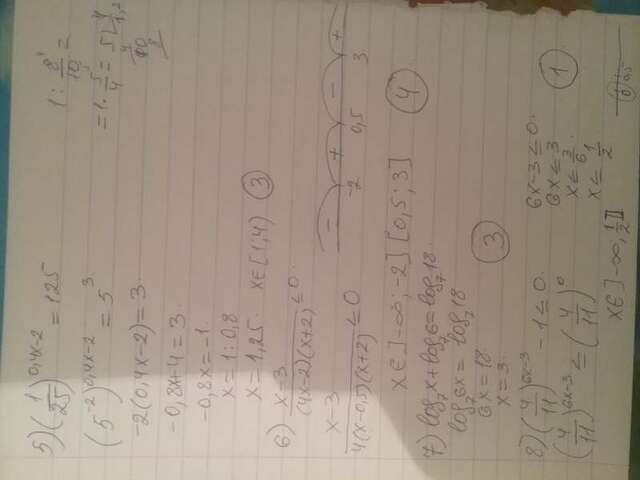 5) (1/25)^0,4x-2 = 125
(5^-2)^0,4x-2 = 5^3
-2(0,4x-2) = 3
-0,8x+4 = 3
-0,8x = -1
x = 1:0,8
x = 1,25 x∈[1;4) 3
1 : 8/10 =
= 1 · 5/4 =
6) x-3/(4x-2)(x+2) ≤ 0
x-3/4(x-0,5)(x+2) ≤ 0
- + - +
-2 0,5 3
x∈]-∞;-2] [0,5;3] 4
7) log₇x + log₇6 = log₇18
log₇6x = log₇18
6x = 18
x = 3 3
8) (4/11)^6x-3 - 1 ≤ 0
(4/11)^6x-3 ≤ (4/11)^0
6x-3 ≤ 0
6x ≤ 3
x ≤ 3/6
x ≤ 1/2
1
x∈]-∞,1/2]